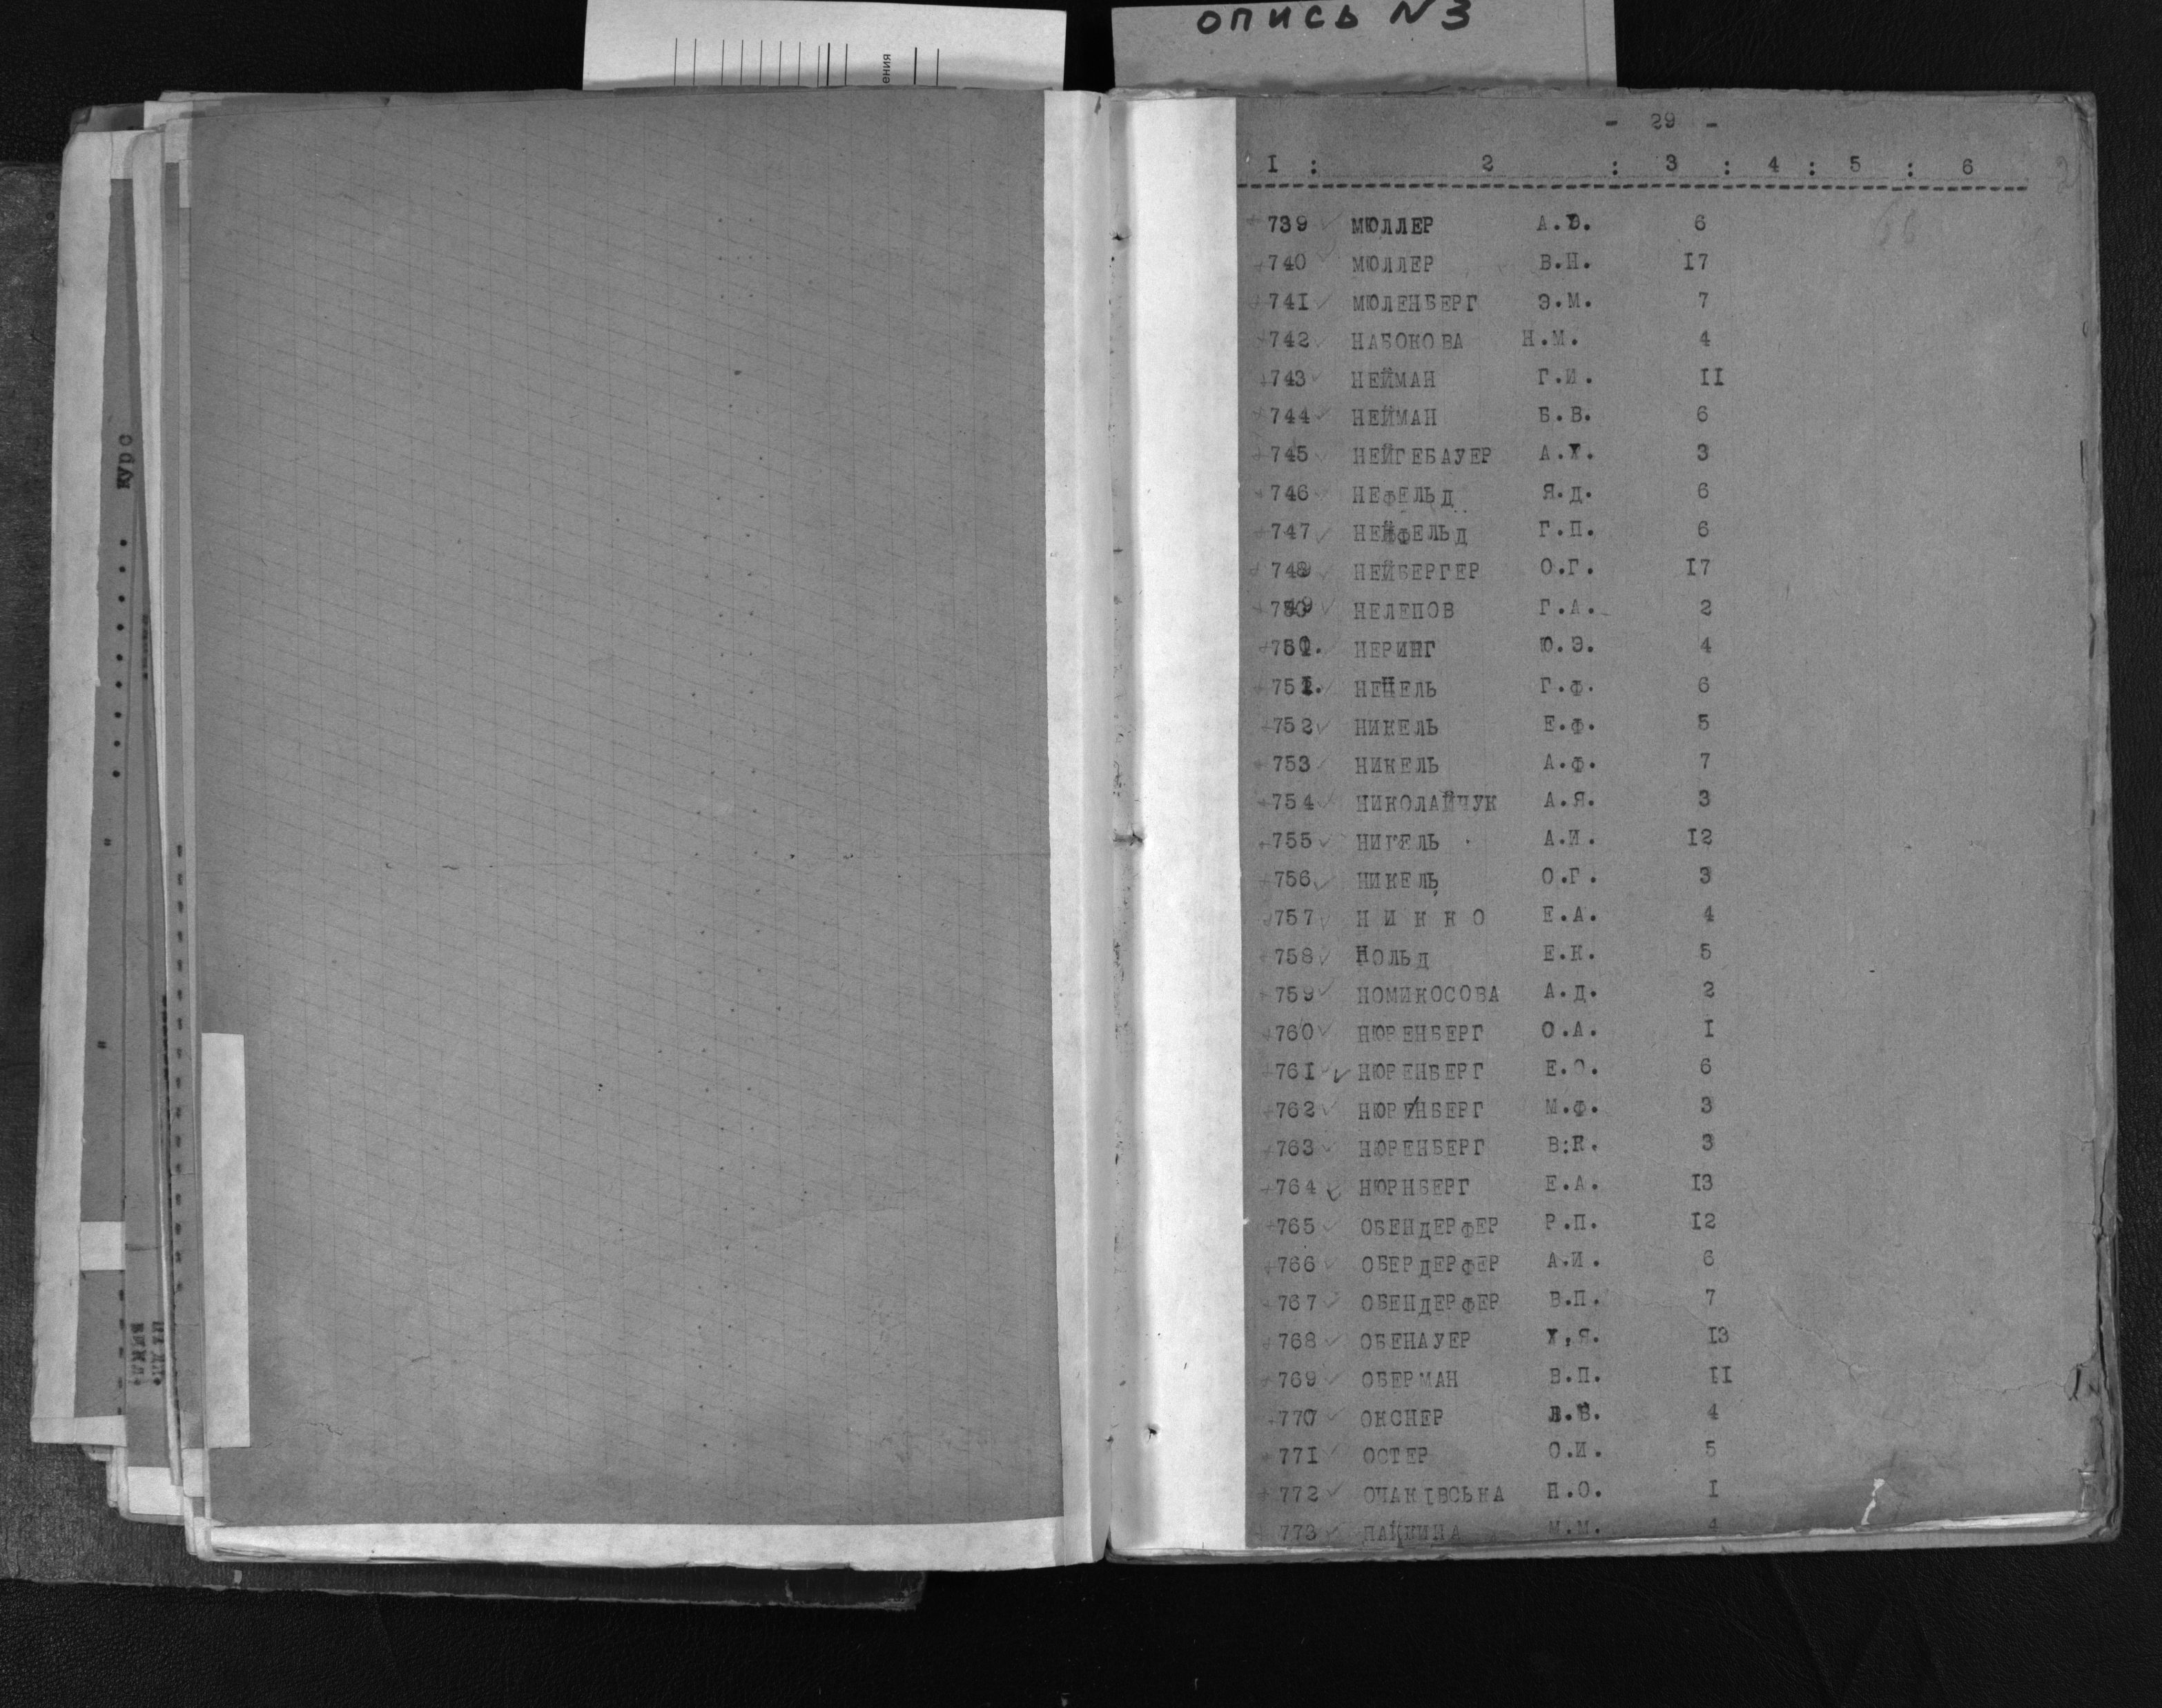 опись №3
ения
курс
- 29 -
I : 2 : 3 : 4 : 5 : 6
739 МЮЛЛЕР А.Э. 6
740 МЮЛЛЕР В.Н. I7
74I МЮЛЕНБЕРГ Э.М. 7
742 НАБОКОВА Н.М. 4
743 НЕЙМАН Г.И. II
744 НЕЙМАН Б.В. 6
745 НЕЙГЕБАУЕР А.Х. 3
746 НЕФЕЛЬД Я.Д. 6
747 НЕЙФЕЛЬД Г.П. 6
748 НЕЙБЕРГЕР О.Г. I7
749 НЕЛЕПОВ Г.А. 2
750. НЕРИНГ Ю.Э. 4
75I. НЕЦЕЛЬ Г.Ф. 6
752 НИКЕЛЬ Е.Ф. 5
753 НИКЕЛЬ А.Ф. 7
754 НИКОЛАЙЧУК А.Я. 3
755 НИГЕЛЬ А.И. I2
756 НИКЕЛЬ О.Г. 3
757 Н И К К О Е.А. 4
758 НОЛЬД Е.К. 5
759 НОМИКОСОВА А.Д. 2
760 НЮРЕНБЕРГ О.А. I
76I НЮРЕНБЕРГ Е.О. 6
762 НЮРЕНБЕРГ М.Ф. 3
763 НЮРЕНБЕРГ В:К. 3
764 НЮРНБЕРГ Е.А. I3
765 ОБЕНДЕРФЕР Р.П. I2
766 ОБЕРДЕРФЕР А.И. 6
767 ОБЕНДЕРФЕР В.П. 7
768 ОБЕНАУЕР Х,Я. I3
769 ОБЕРМАН В.П. II
770 ОКСНЕР Л.В. 4
77I ОСТЕР О.И. 5
772 ОЧАКІВСЬКА Н.О. I
773 М.М. 4